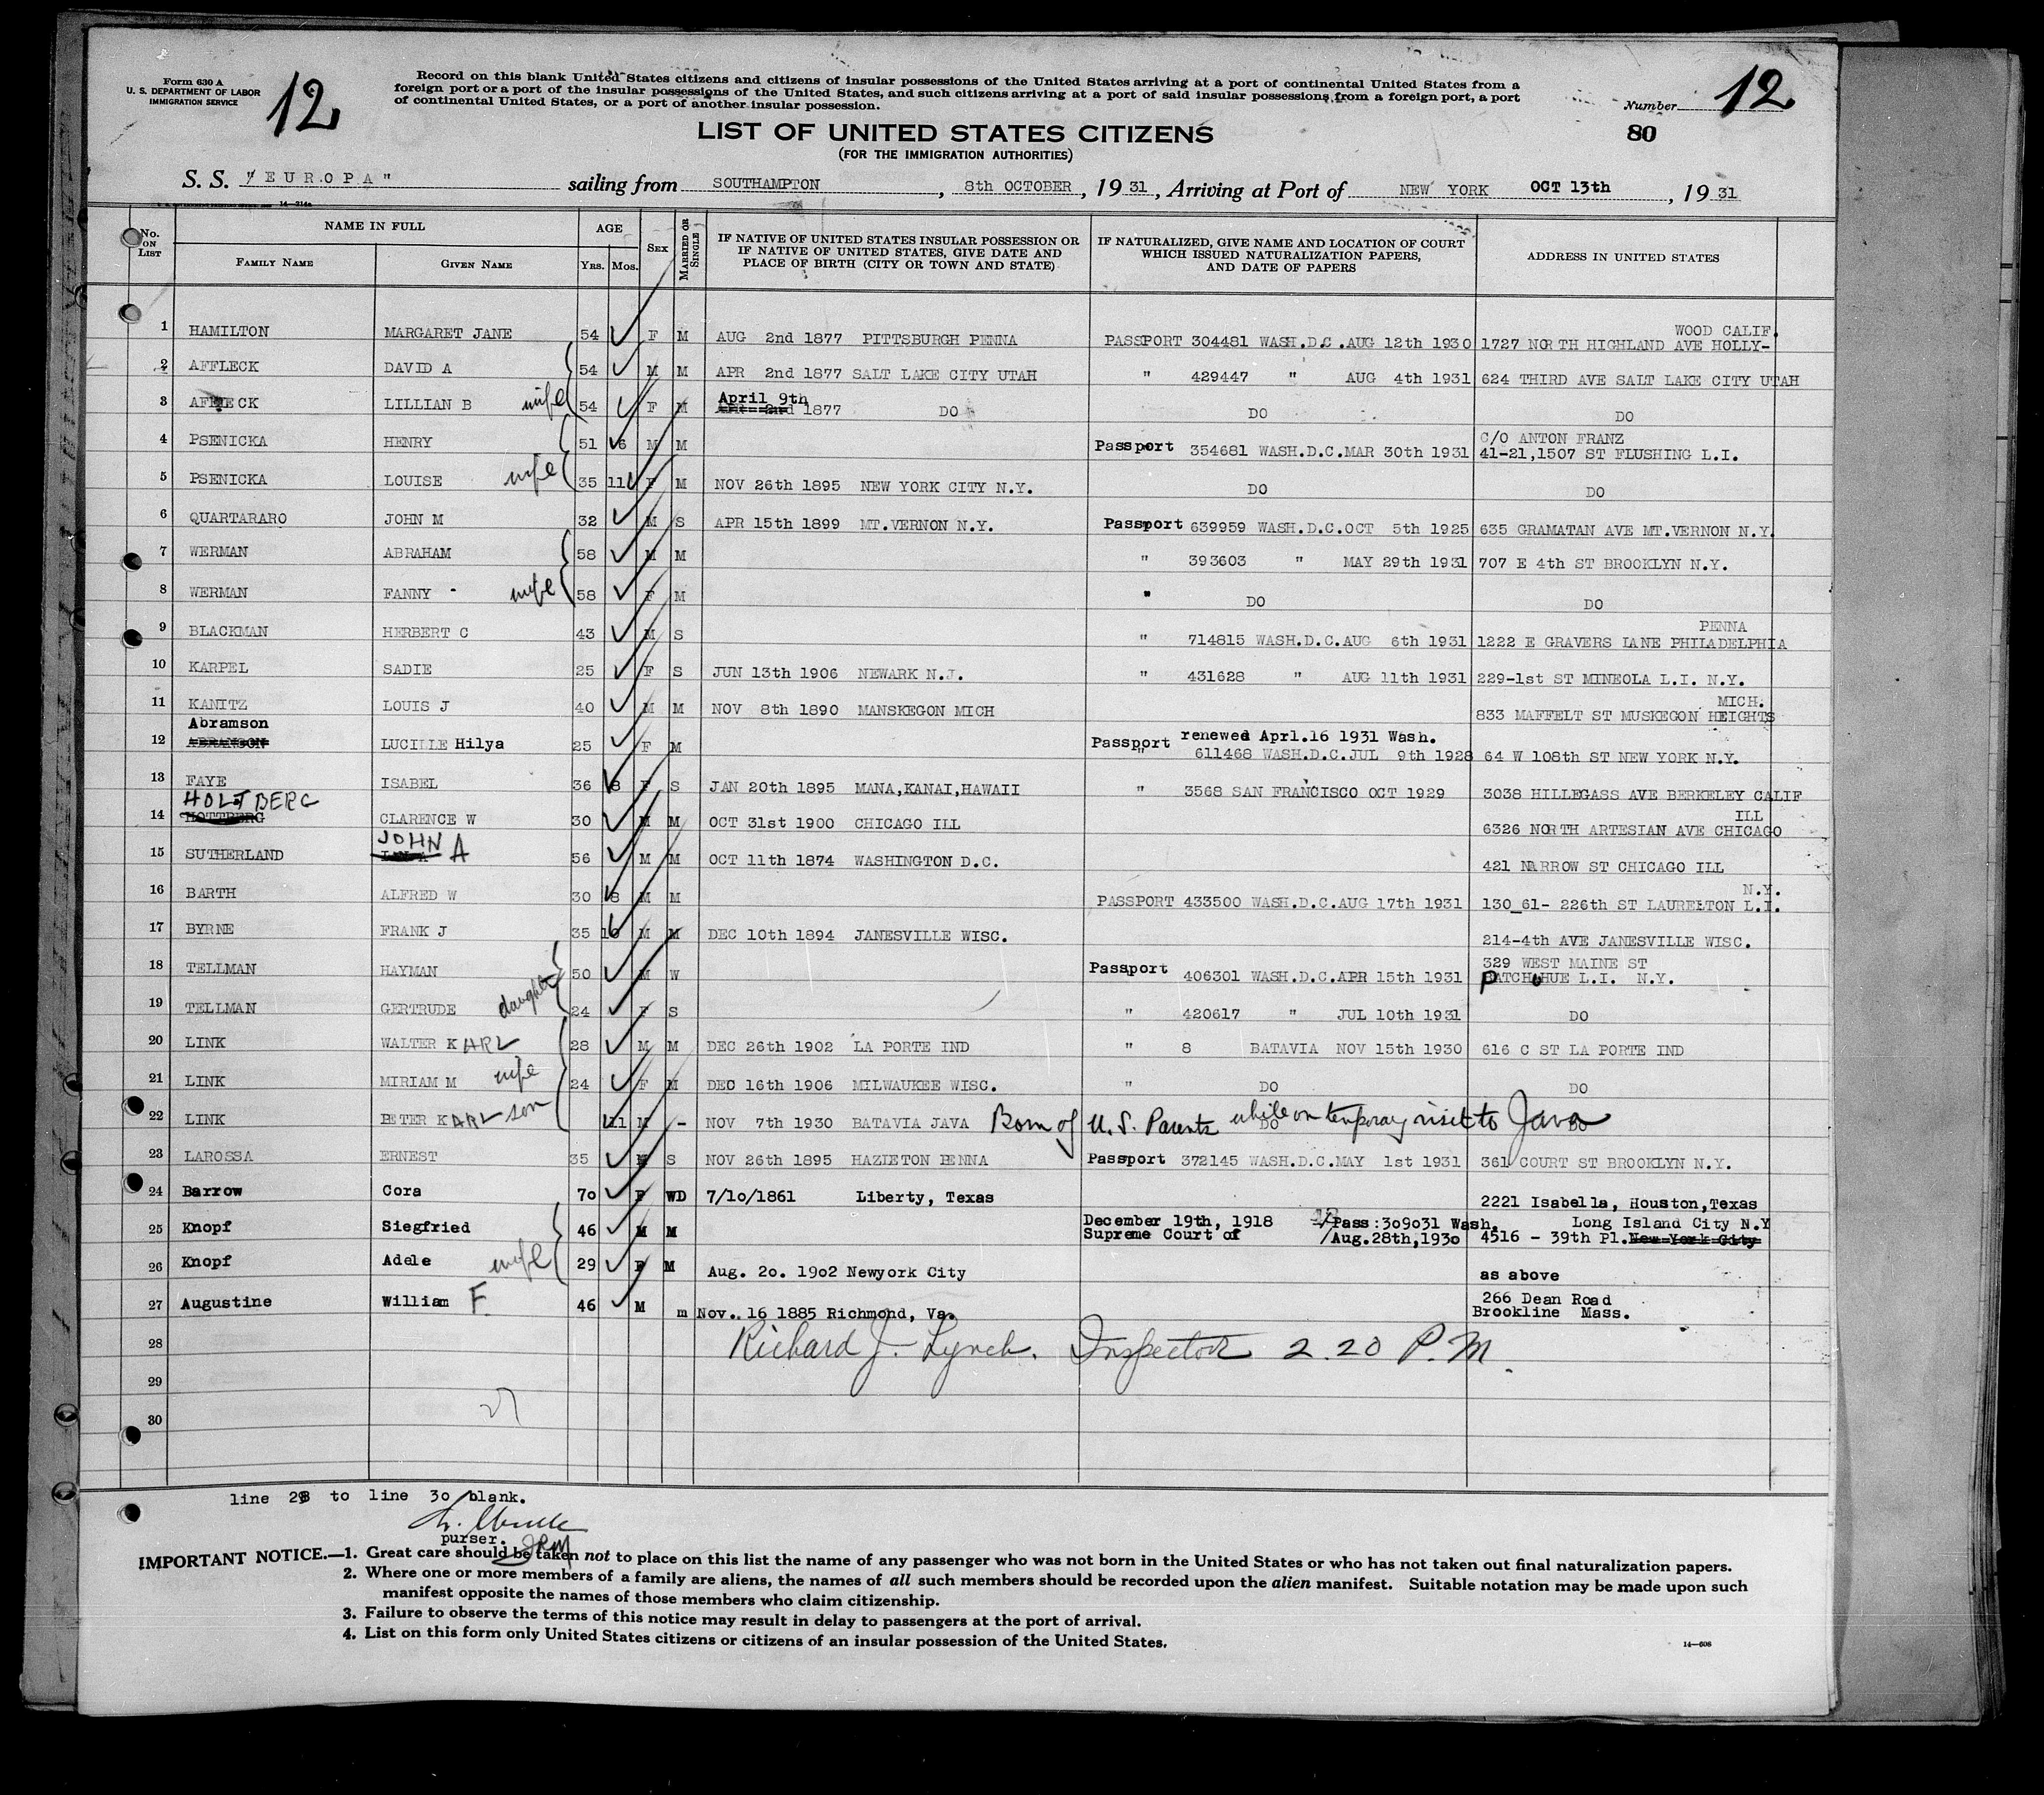 Form 630 A
U. S. DEPARTMENT OF LABOR
IMMIGRATION SERVICE
12
Record on this blank United States citizens and citizens of insular possessions of the United States arriving at a port of continental United States from a
foreign port or a port of the insular possessions of the United States, and such citizens arriving at a port of said insular possessions from a foreign port, a port
of continental United States, or a port of another insular possession.
Number 12
LIST OF UNITED STATES CITIZENS
80
(FOR THE IMMIGRATION AUTHORITIES)
S. S. "EUROPA" sailing from SOUTHAMPTON, 8th OCTOBER, 1931, Arriving at Port of NEW YORK OCT 13th, 1931
14—214a
No. ON LIST
NAME IN FULL
FAMILY NAME
GIVEN NAME
AGE
YRS. MOS.
SEX
MARRIED OR SINGLE
IF NATIVE OF UNITED STATES INSULAR POSSESSION OR
IF NATIVE OF UNITED STATES, GIVE DATE AND
PLACE OF BIRTH (CITY OR TOWN AND STATE)
IF NATURALIZED, GIVE NAME AND LOCATION OF COURT
WHICH ISSUED NATURALIZATION PAPERS,
AND DATE OF PAPERS
ADDRESS IN UNITED STATES
WOOD CALIF.
1 HAMILTON MARGARET JANE 54 F M AUG 2nd 1877 PITTSBURGH PENNA PASSPORT 304481 WASH.D.C.AUG 12th 1930 1727 NORTH HIGHLAND AVE HOLLY-
2 AFFLECK DAVID A 54 M M APR 2nd 1877 SALT LAKE CITY UTAH " 429447 " AUG 4th 1931 624 THIRD AVE SALT LAKE CITY UTAH
April 9th
3 AFFLECK LILLIAN B wife 54 F M APR 2nd 1877 DO DO DO
C/O ANTON FRANZ
4 PSENICKA HENRY 51 6 M M Passport 354681 WASH.D.C.MAR 30th 1931 41-21,1507 ST FLUSHING L.I.
5 PSENICKA LOUISE wife 35 11 F M NOV 26th 1895 NEW YORK CITY N.Y. DO DO
6 QUARTARARO JOHN M 32 M S APR 15th 1899 MT.VERNON N.Y. Passport 639959 WASH.D.C.OCT 5th 1925 635 GRAMATAN AVE MT.VERNON N.Y.
7 WERMAN ABRAHAM 58 M M " 393603 " MAY 29th 1931 707 E 4th ST BROOKLYN N.Y.
8 WERMAN FANNY wife 58 F M " DO DO
PENNA
9 BLACKMAN HERBERT C 43 M S " 714815 WASH.D.C.AUG 6th 1931 1222 E GRAVERS LANE PHILADELPHIA
10 KARPEL SADIE 25 F S JUN 13th 1906 NEWARK N.J. " 431628 " AUG 11th 1931 229-1st ST MINEOLA L.I. N.Y.
MICH.
11 KANITZ LOUIS J 40 M M NOV 8th 1890 MANSKEGON MICH 833 MAFFELT ST MUSKEGON HEIGHTS
Abramson
renewed Apr1.16 1931 Wash.
12 ABRANSON LUCILLE Hilya 25 F M Passport " 611468 WASH.D.C.JUL 9th 1928 64 W 108th ST NEW YORK N.Y.
13 FAYE ISABEL 36 8 F S JAN 20th 1895 MANA,KANAI,HAWAII " 3568 SAN FRANCISCO OCT 1929 3038 HILLEGASS AVE BERKELEY CALIF
HOLTBERG
ILL
14 HOTTBERG CLARENCE W 30 M M OCT 31st 1900 CHICAGO ILL 6326 NORTH ARTESIAN AVE CHICAGO
JOHN A
15 SUTHERLAND 56 M M OCT 11th 1874 WASHINGTON D.C. 421 NARROW ST CHICAGO ILL
N.Y.
16 BARTH ALFRED W 30 8 M M PASSPORT 433500 WASH.D.C.AUG 17th 1931 130_61- 226th ST LAURELTON L.I.
17 BYRNE FRANK J 35 10 M M DEC 10th 1894 JANESVILLE WISC. 214-4th AVE JANESVILLE WISC.
329 WEST MAINE ST
18 TELLMAN HAYMAN 50 M W Passport 406301 WASH.D.C.APR 15th 1931 PATCHOHUE L.I. N.Y.
19 TELLMAN GERTRUDE daughter 24 F S " 420617 " JUL 10th 1931 DO
20 LINK WALTER KARL 28 M M DEC 26th 1902 LA PORTE IND " 8 BATAVIA NOV 15th 1930 616 C ST LA PORTE IND
21 LINK MIRIAM M wife 24 F M DEC 16th 1906 MILWAUKEE WISC. " DO DO
22 LINK PETER KARL son 11 M - NOV 7th 1930 BATAVIA JAVA Born of U.S. Parents while on temporary visit to Java DO DO
23 LAROSSA ERNEST 35 M S NOV 26th 1895 HAZLETON PENNA Passport 372145 WASH.D.C.MAY 1st 1931 361 COURT ST BROOKLYN N.Y.
24 Barrow Cora 70 F WD 7/10/1861 Liberty, Texas 2221 Isabella, Houston,Texas
December 19th, 1918 /Pass:309031 Wash. Long Island City N.Y
25 Knopf Siegfried 46 M M Supreme Court of /Aug.28th,1930 4516 - 39th Pl. New York City
26 Knopf Adele wife 29 F M Aug. 20. 1902 Newyork City as above
266 Dean Road
27 Augustine William F. 46 M m Nov. 16 1885 Richmond, Va. Brookline Mass.
28 Richard J. Lynch. Inspector 2.20 P.M.
29
30
27
line 28 to line 30 blank.
purser. JRM
IMPORTANT NOTICE.—1. Great care should be taken not to place on this list the name of any passenger who was not born in the United States or who has not taken out final naturalization papers.
2. Where one or more members of a family are aliens, the names of all such members should be recorded upon the alien manifest. Suitable notation may be made upon such
manifest opposite the names of those members who claim citizenship.
3. Failure to observe the terms of this notice may result in delay to passengers at the port of arrival.
4. List on this form only United States citizens or citizens of an insular possession of the United States.
14—608